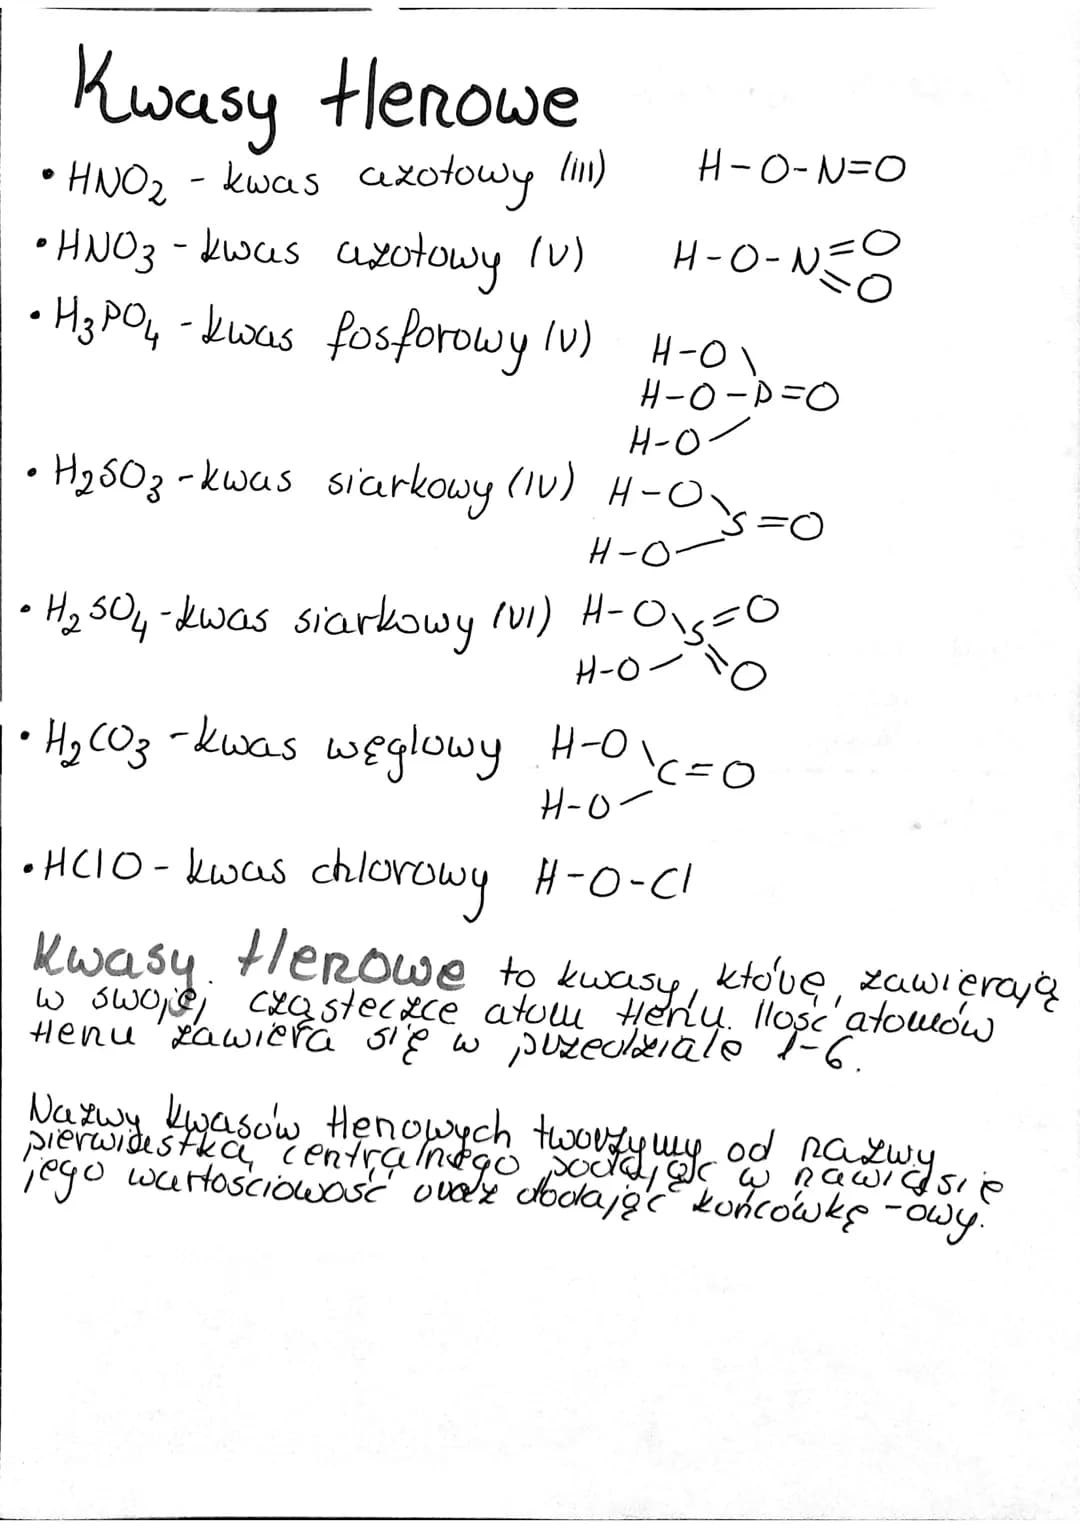 Kwasy tlenowe
• HNO2 - kwas azotowy (III) H-O-N=O
• HNO3 - kwas azotowy (V) H-O-N=O
=O
• H3PO4 - kwas fosforowy (V) H-O\
H-O-P=O
H-O/
• H2SO3 - kwas siarkowy (IV) H-O\S=O
H-O/
• H2SO4 - kwas siarkowy (VI) H-O\S=O
H-O/ =O
• H2CO3 - kwas węglowy H-O\C=O
H-O/
• HClO - kwas chlorowy H-O-Cl
Kwasy tlenowe to kwasy, które zawierają
w swojej cząsteczce atom tlenu. Ilość atomów
tlenu zawiera się w przedziale 1-6.
Nazwy kwasów tlenowych tworzymy od nazwy
pierwiastka centralnego podając w nawiasie
jego wartościowość oraz dodając końcówkę -owy.